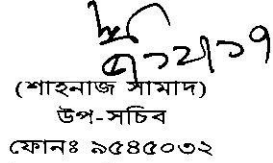 (শাহনাজ সামাদ)
উপ-সচিব
ফোনঃ ৯৫৪৫০৩২